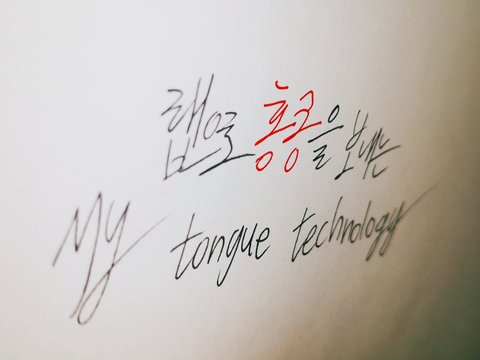 랩으로 홍콩을 보내는
My tongue technology